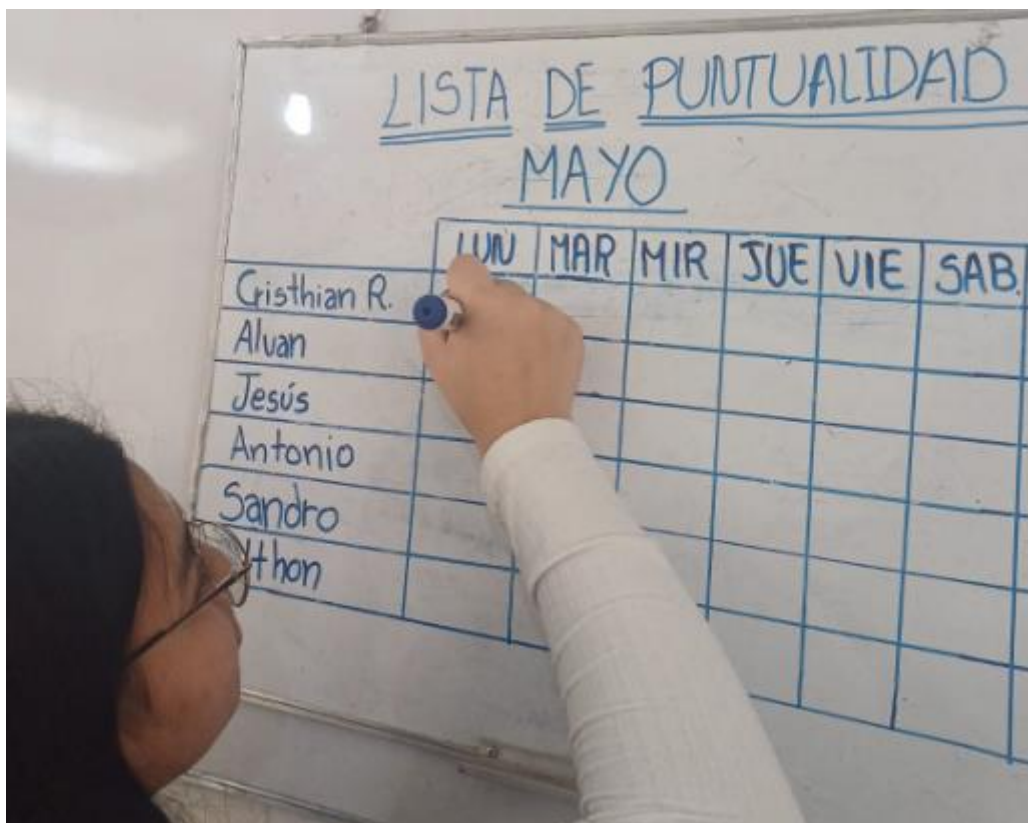 LISTA DE PUNTUALIDAD
MAYO
LUN MAR MIR JUE VIE SAB.
Cristhian R.
Aluan
Jesús
Antonio
Sandro